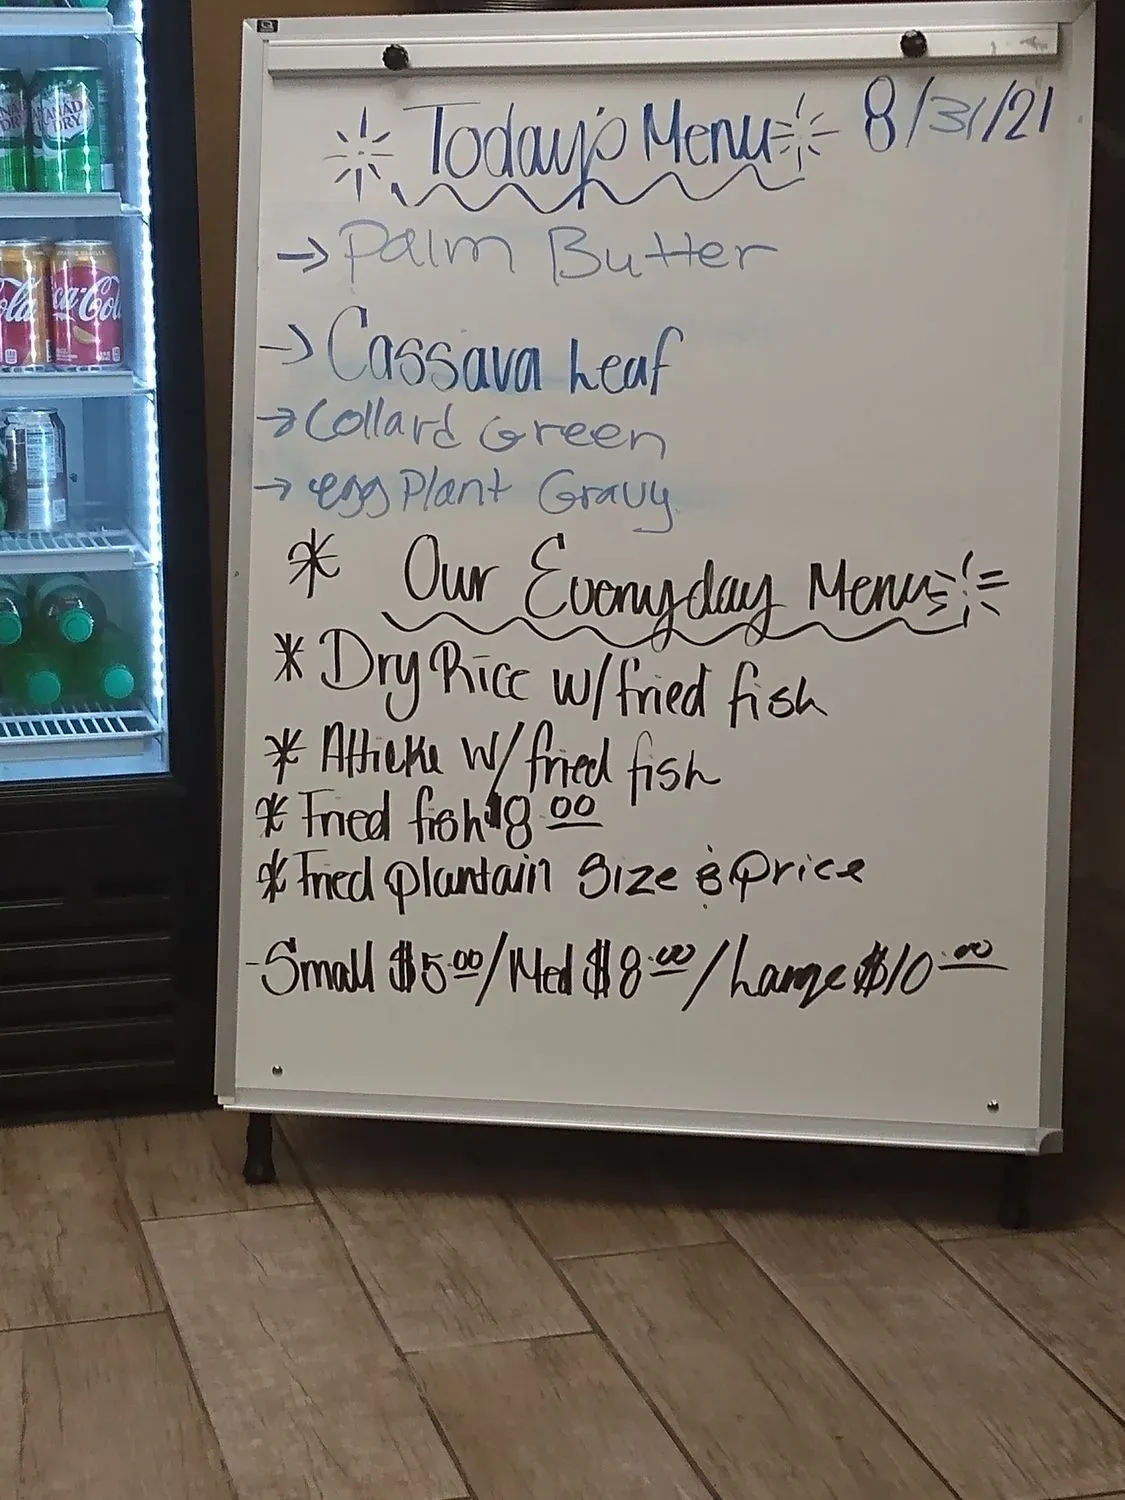 Today's Menu 8/31/21
→ Palm Butter
→ Cassava Leaf
→ Collard Green
→ egg Plant Gravy
* Our Everyday Menu
* Dry Rice w/fried fish
* Attieke w/fried fish
* Fried fish $8.00
* Fried plantain Size & Price
-Small $5.00/Med $8.00/Large $10.00
CANADA DRY
Coca-Cola